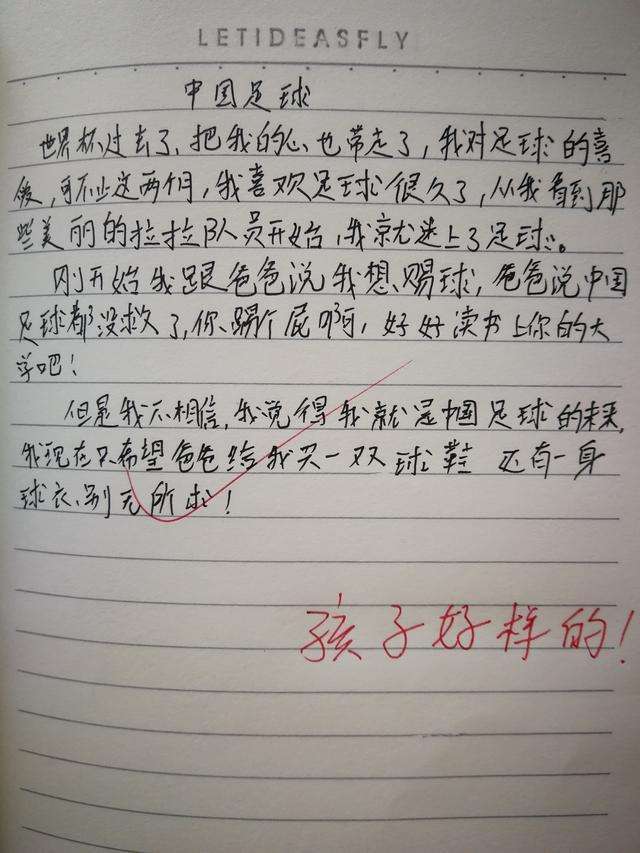 LETIDEASFLY
中国足球
世界杯过去了、把我的心也带走了,我对足球的喜
爱,可不止这两个月,我喜欢足球很久了,从我看到那
些美丽的拉拉队员开始,我就迷上了足球。
刚开始我跟爸爸说我想踢球,爸爸说中国
足球都没救了,你踢个屁啊,好好读书上你的大
学吧!
但是我不相信,我觉得我就是中国足球的未来,
我现在只希望爸爸给我买一双球鞋 还有一身
球衣、别无所求!
孩子好样的!